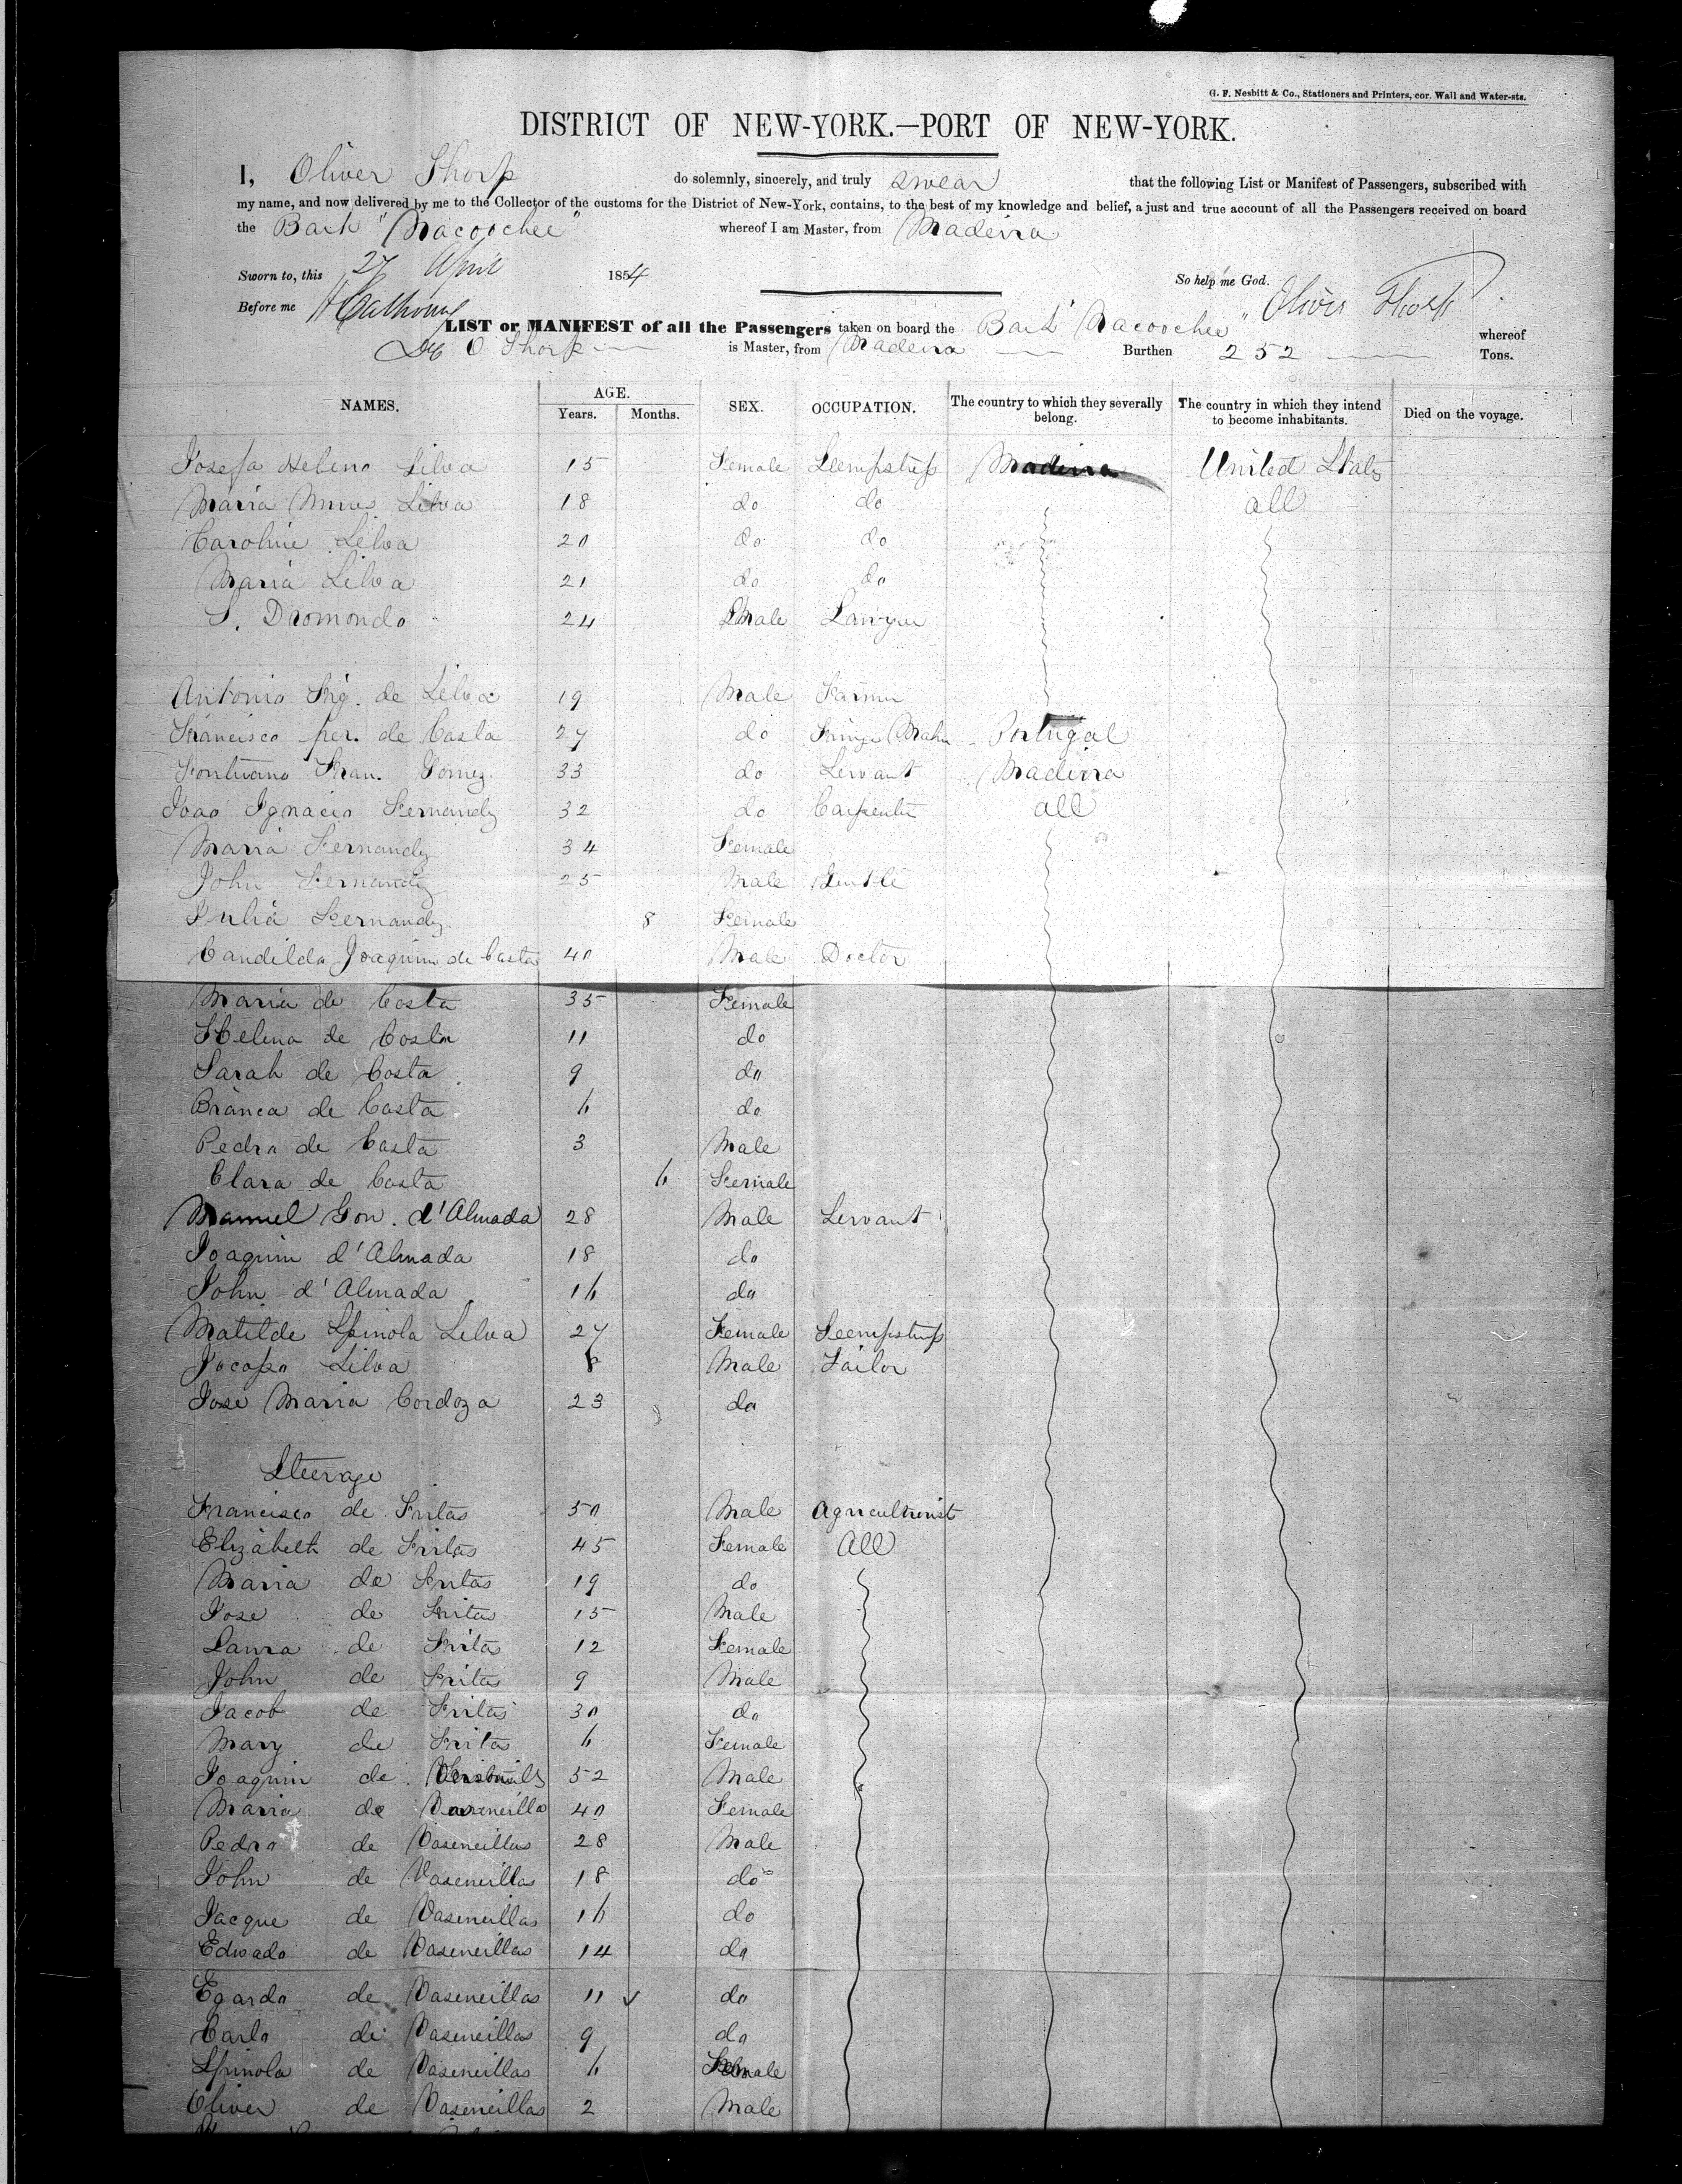 G. F. Nesbitt & Co., Stationers and Printers, cor. Wall and Water-sts.
DISTRICT OF NEW-YORK.—PORT OF NEW-YORK.
I, Oliver Thorp do solemnly, sincerely, and truly swear that the following List or Manifest of Passengers, subscribed with
my name, and now delivered by me to the Collector of the customs for the District of New-York, contains, to the best of my knowledge and belief, a just and true account of all the Passengers received on board
the Bark "Nacoochee" whereof I am Master, from Madeira
Sworn to, this 27 April 1854 So help me God.
Before me Oliver Thorp
LIST or MANIFEST of all the Passengers taken on board the Bark "Nacoochee" whereof
O Thorp is Master, from Madeira Burthen 252 Tons.
NAMES. AGE. Years. Months. SEX. OCCUPATION. The country to which they severally belong. The country in which they intend to become inhabitants. Died on the voyage.
Josefa Helena Silva 15 Female Madeira United States
Maria Silva 18 do do all
Caroline Silva 20 do do
Maria Silva 21 do do
S. Dromondo 24 Male Lawyer
Antonio de Silva 19 Male Farmer
Francisco per. de Costa 27 do Portugal
Fran. Gomez 33 do Servant Madeira
Joao Ignacio Fernandz 32 do Carpenter all
Maria Fernandz 34 Female
John Fernandz 25 Male
Julia Fernandz 8 Female
Candildo Joaquim de Costa 40 Male Doctor
Maria de Costa 35 Female
Helena de Costa 11 do
Sarah de Costa 9 do
Branca de Costa 6 do
Pedro de Costa 3 Male
Clara de Costa 6 Female
Manuel Gon. d'Almada 28 Male Servant
Joaquim d'Almada 18 do
John d'Almada 16 do
Matilde Spinola Silva 27 Female
Jocopo Silva 8 Male Tailor
Jose Maria Cordoza 23 do
Steerage
Francisco de Fritas 50 Male Agriculturist
Elizabeth de Fritas 45 Female All
Maria de Fritas 19 do
Jose de Fritas 15 Male
Laura de Frita 12 Female
John de Frita 9 Male
Jacob de Fritas 30 do
Mary de Frita 6 Female
Joaquim de 52 Male
Maria de 40 Female
Pedro de Vasencillas 28 Male
John de Vasencillas 18 do
Jacque de Vasencillas 16 do
Edwado de Vasencillas 14 do
Egardo de Vasencillas 11 do
Carlo de Vasencillas 9 do
Spinola de Vasencillas 6 Female
Oliver de Vasencillas 2 Male